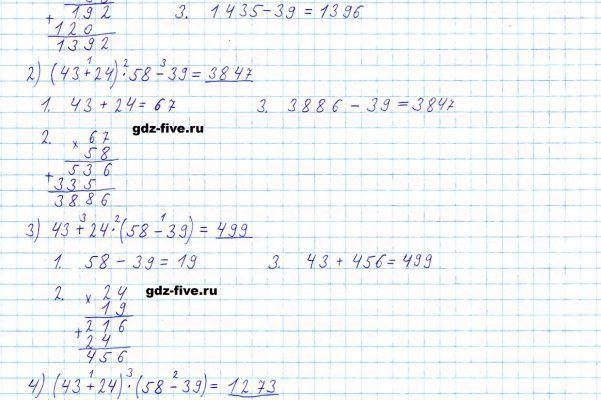 192
3. 1435-39 = 1396
+
120
1392
2) (43+24)·58-39 = 3847
1 2 3
1. 43 + 24 = 67
3. 3886 - 39 = 3847
gdz-five.ru
2. × 67
58
536
+
335
3886
3) 43+24·(58-39) = 499
3 2 1
1. 58 - 39 = 19
3. 43 + 456 = 499
gdz-five.ru
2. × 24
19
216
+
24
456
4) (43+24)·(58-39) = 1273
1 3 2